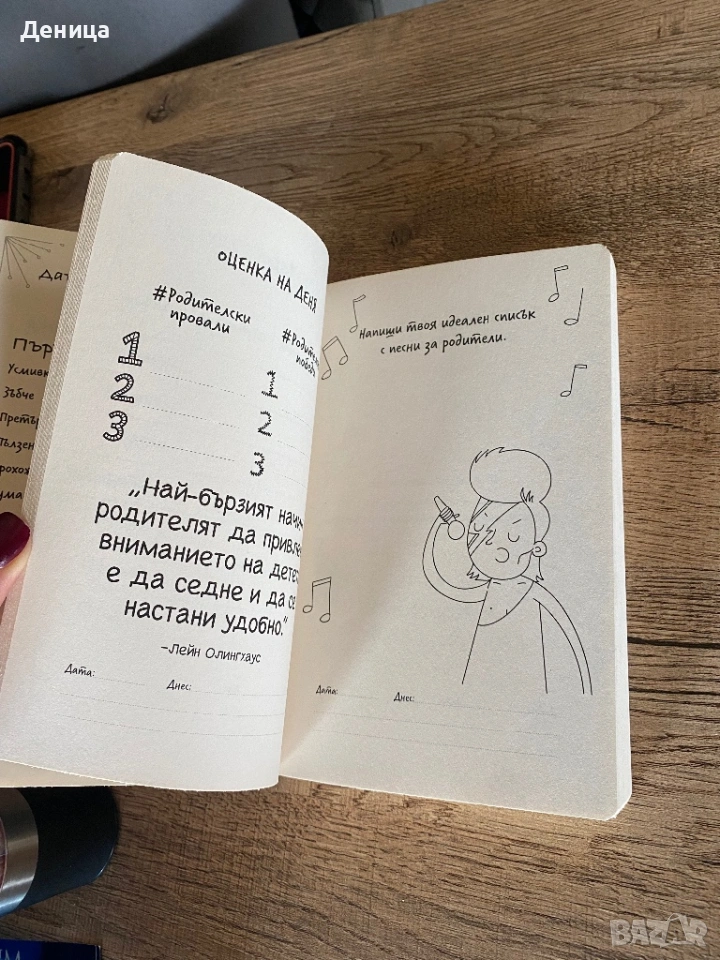 Деница
Дат
Пър
Усмивк
Зъбче
Претър
Пълзен
рохож
ума
оценка на деня
#Родителски
провали
#Родителс
победи
1
2
3
1
2
3
„Най-бързият начин
родителят да привле
вниманието на детет
е да седне и да се
настани удобно."
-Лейн Олингхаус
Дата:
Днес:
Напиши твоя идеален списък
с песни за родители.
Дата:
Днес:
BAZAR